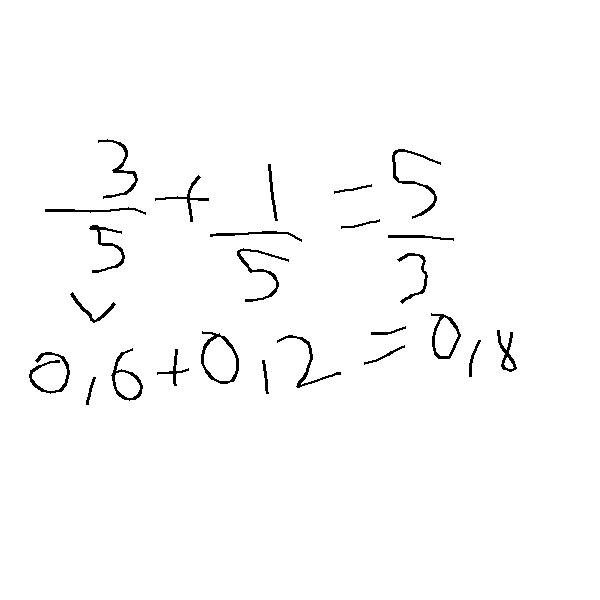 3/5 + 1/5 = 5/3
0,6 + 0,2 = 0,8